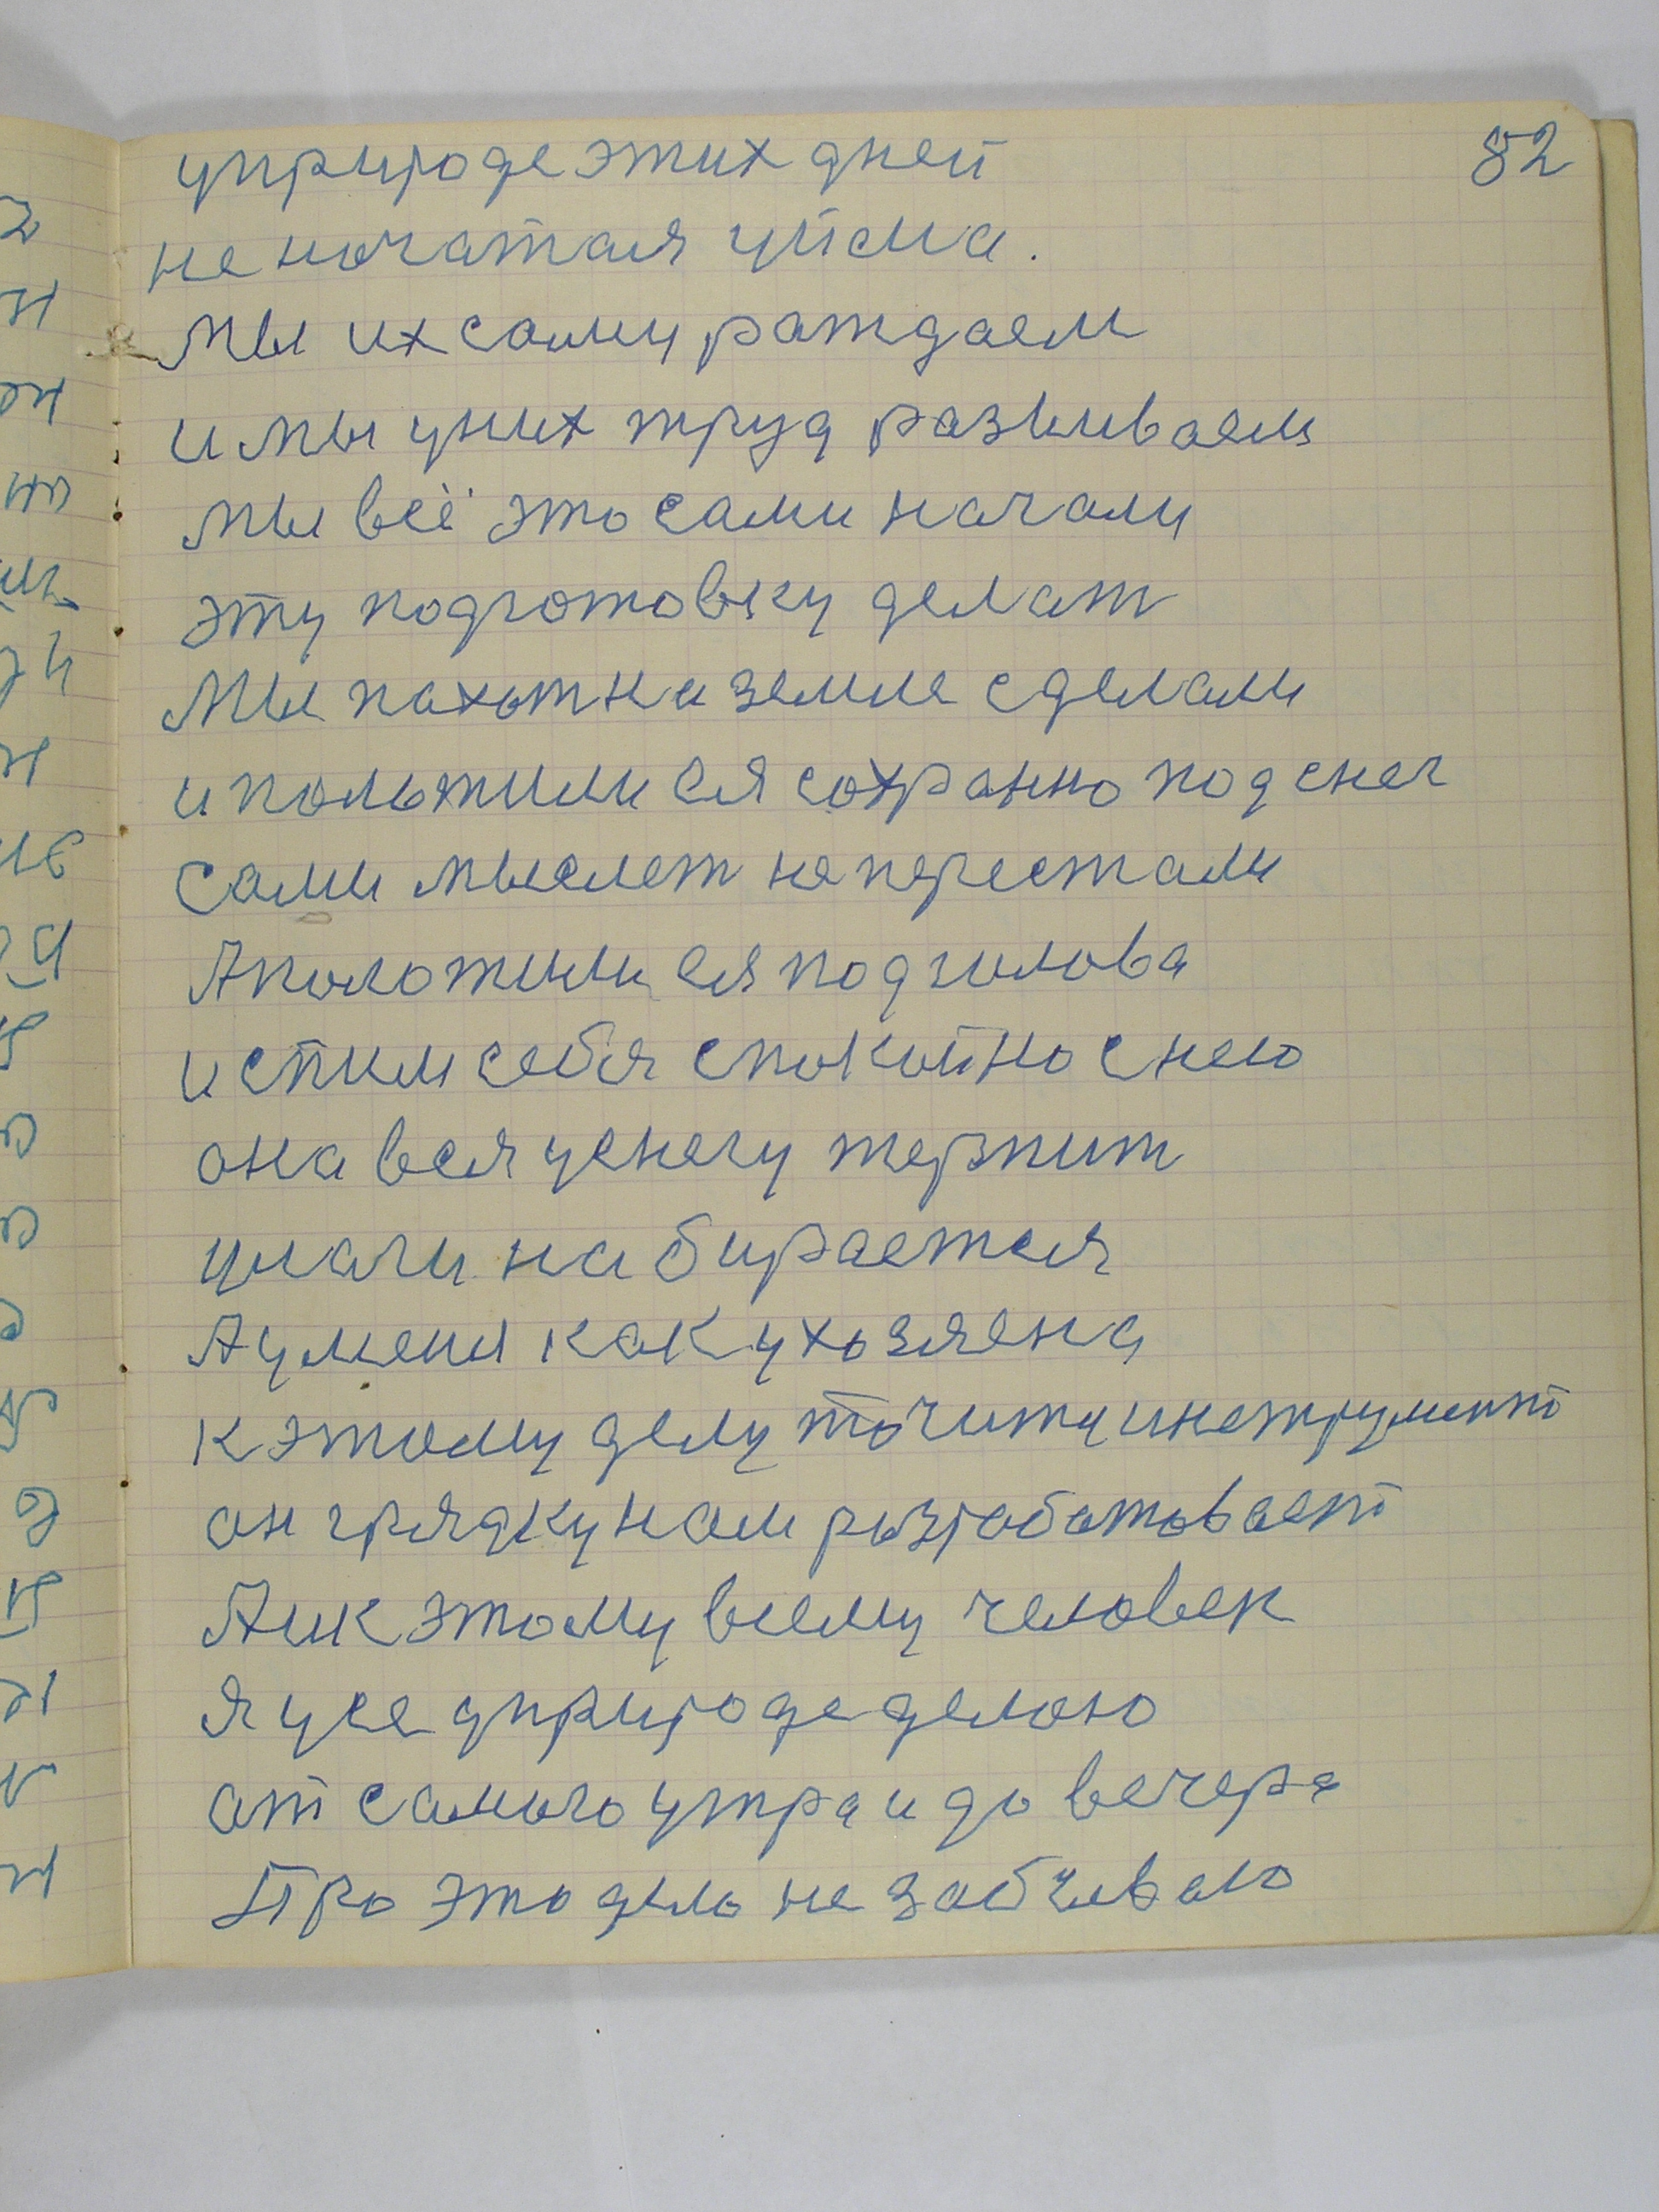 82
уприроде этих дней
не початая уйма.
мы их сами раждаем
и мы уних труд развиваем
мы всё это сами начали
эту подготовку делат
мы пахотна земле сделали
и положили ея сохранно под снег
сами мыслет не перестали
А положили ея под голова
и спим себя спокойно с нею
она вся уснегу терпит
улаги набирается
А умення как ухозяена
к этому делу точитця инструмент
он грядку нам разработовает
А ик этому всему человек
я усе уприроде делаю
от самого утра и до вечера
Про это дело не забуваю